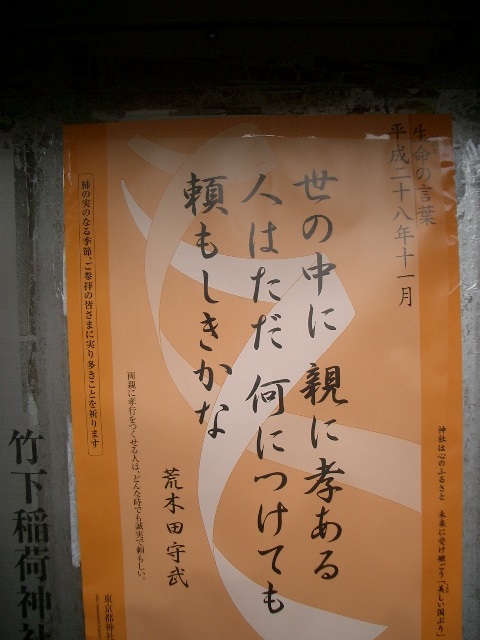 生命の言葉
平成二十八年十一月
世の中に 親に孝ある
人はただ 何につけても
頼もしきかな
荒木田守武
両親に孝行をつくせる人は、どんな時でも誠実で頼もしい。
柿の実のなる季節、ご参拝の皆さまに実り多きことを祈ります
神社は心のふるさと 未来に受け継ごう「美しい国ぶり」
東京都神社
竹下稲荷神社